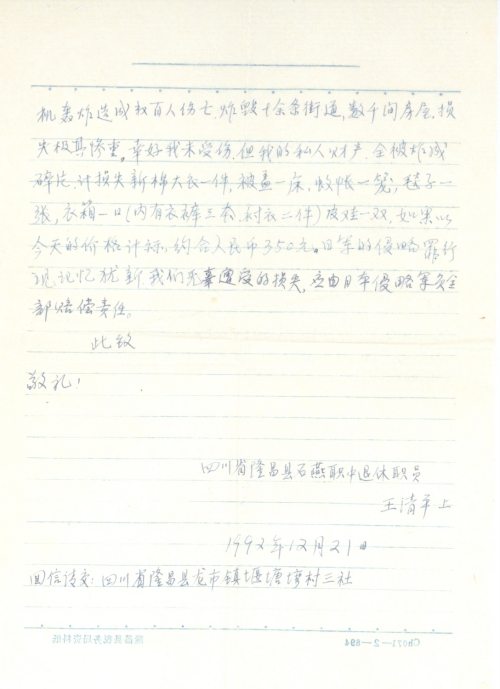 机轰炸造成数百人伤亡,炸毁十余条街道,数千间房屋,损
失极其惨重。幸好我未受伤,但我的私人财产,全被炸成
碎片,计损失新棉大衣一件,被盖一床,蚊帐一笼,毯子一
张,衣箱一口(内有衣裤三套,衬衣二件)皮鞋一双,如果以
今天的价格计标,约合人民币350元。日军的侵略罪行
现记忆犹新,我们无辜遭受的损失,应由日本侵略军负全
部赔偿责任。
此致
敬礼!
四川省隆昌县石燕职中退休职员
王清平上
1992年12月21日
回信请交:四川省隆昌县龙市镇堰塘塆村三社
隆昌县税务局资料纸
Ch071—2—894